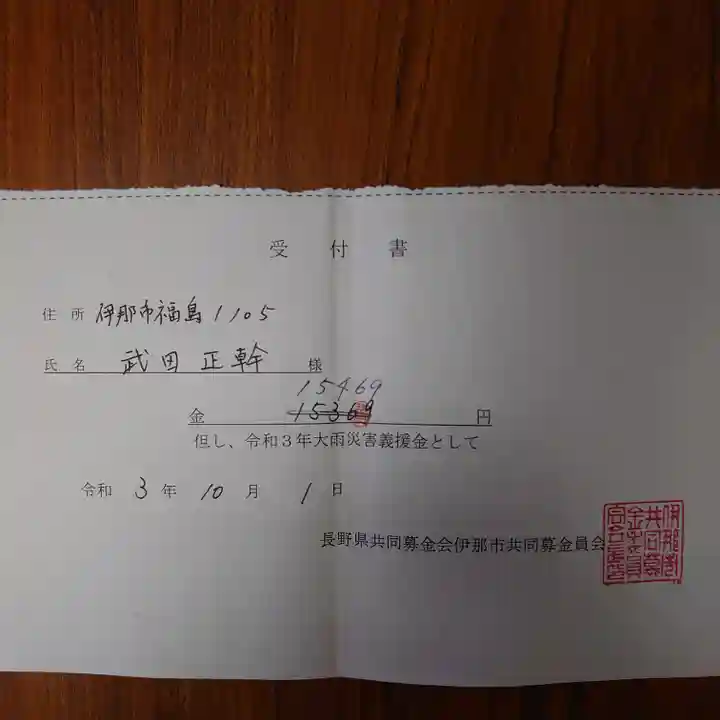 受付書
住所 伊那市福島1105
氏名 武田正幹 様
15469
金 15369 円
但し、令和3年大雨災害義援金として
令和 3年 10月 1日
長野県共同募金会伊那市共同募金員会